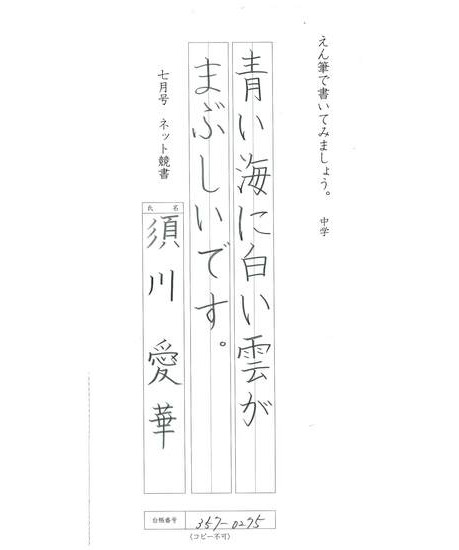 えん筆で書いてみましょう。 中学
青い海に白い雲が
まぶしいです。
七月号 ネット競書
氏名
須川 愛華
台帳番号 357-0275
(コピー不可)